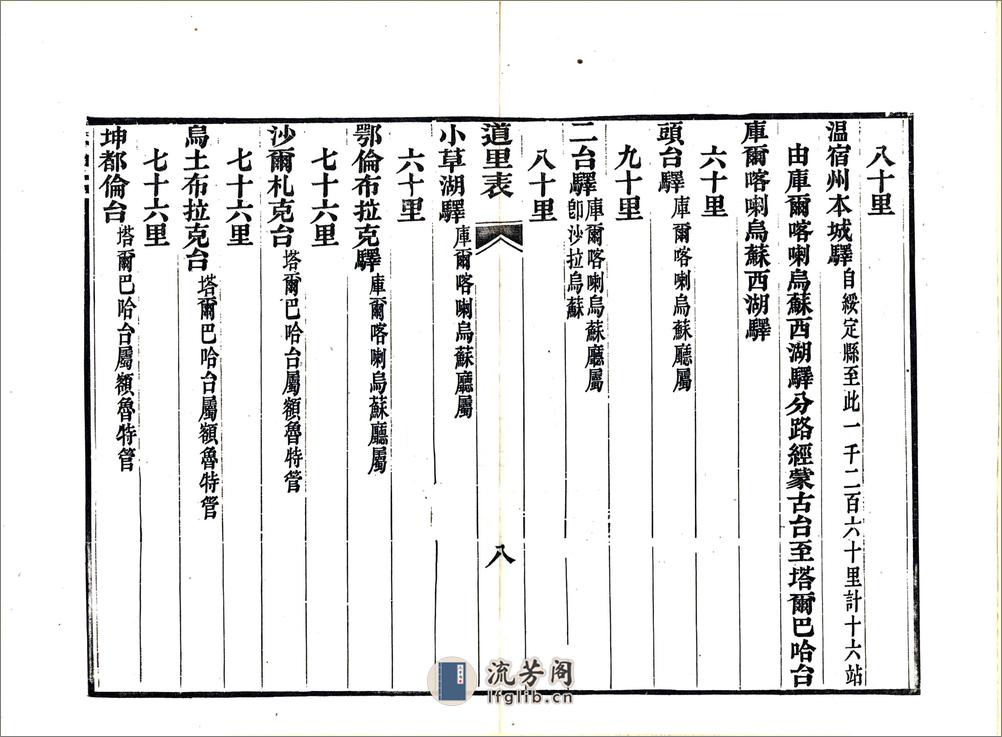 八十里
温宿州本城驛自綏定縣至此一千二百六十里計十六站
由庫爾喀喇烏蘇西湖驛分路經蒙古台至塔爾巴哈台
庫爾喀喇烏蘇西湖驛
六十里
頭台驛庫爾喀喇烏蘇廳屬
九十里
二台驛庫爾喀喇烏蘇廳屬
即沙拉烏蘇
八十里
道里表
八
小草湖驛庫爾喀喇烏蘇廳屬
六十里
鄂倫布拉克驛庫爾喀喇烏蘇廳屬
七十六里
沙爾札克台塔爾巴哈台屬額魯特管
七十六里
烏土布拉克台塔爾巴哈台屬額魯特管
七十六里
坤都倫台塔爾巴哈台屬額魯特管
流芳阁
lfglib.cn